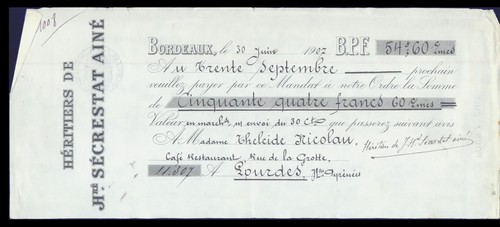 1008
HÉRITIERS DE
JH SÉCRESTAT AINÉ
BORDEAUX, le 30 Juin 1902 B.P.F. 54f,60 cmes
Au Trente Septembre prochain
veuillez payer par ce Mandat à notre Ordre la Somme
de Cinquante quatre francs 60 cmes
Valeur en march. n/ envoi du 30 Ct que passerez suivant avis
A Madame Thelcide Nicolau
Héritiers de J.H. Secrestat ainé
Café Restaurant, Rue de la Grotte,
11.507 A Lourdes, Htes Pyrénées